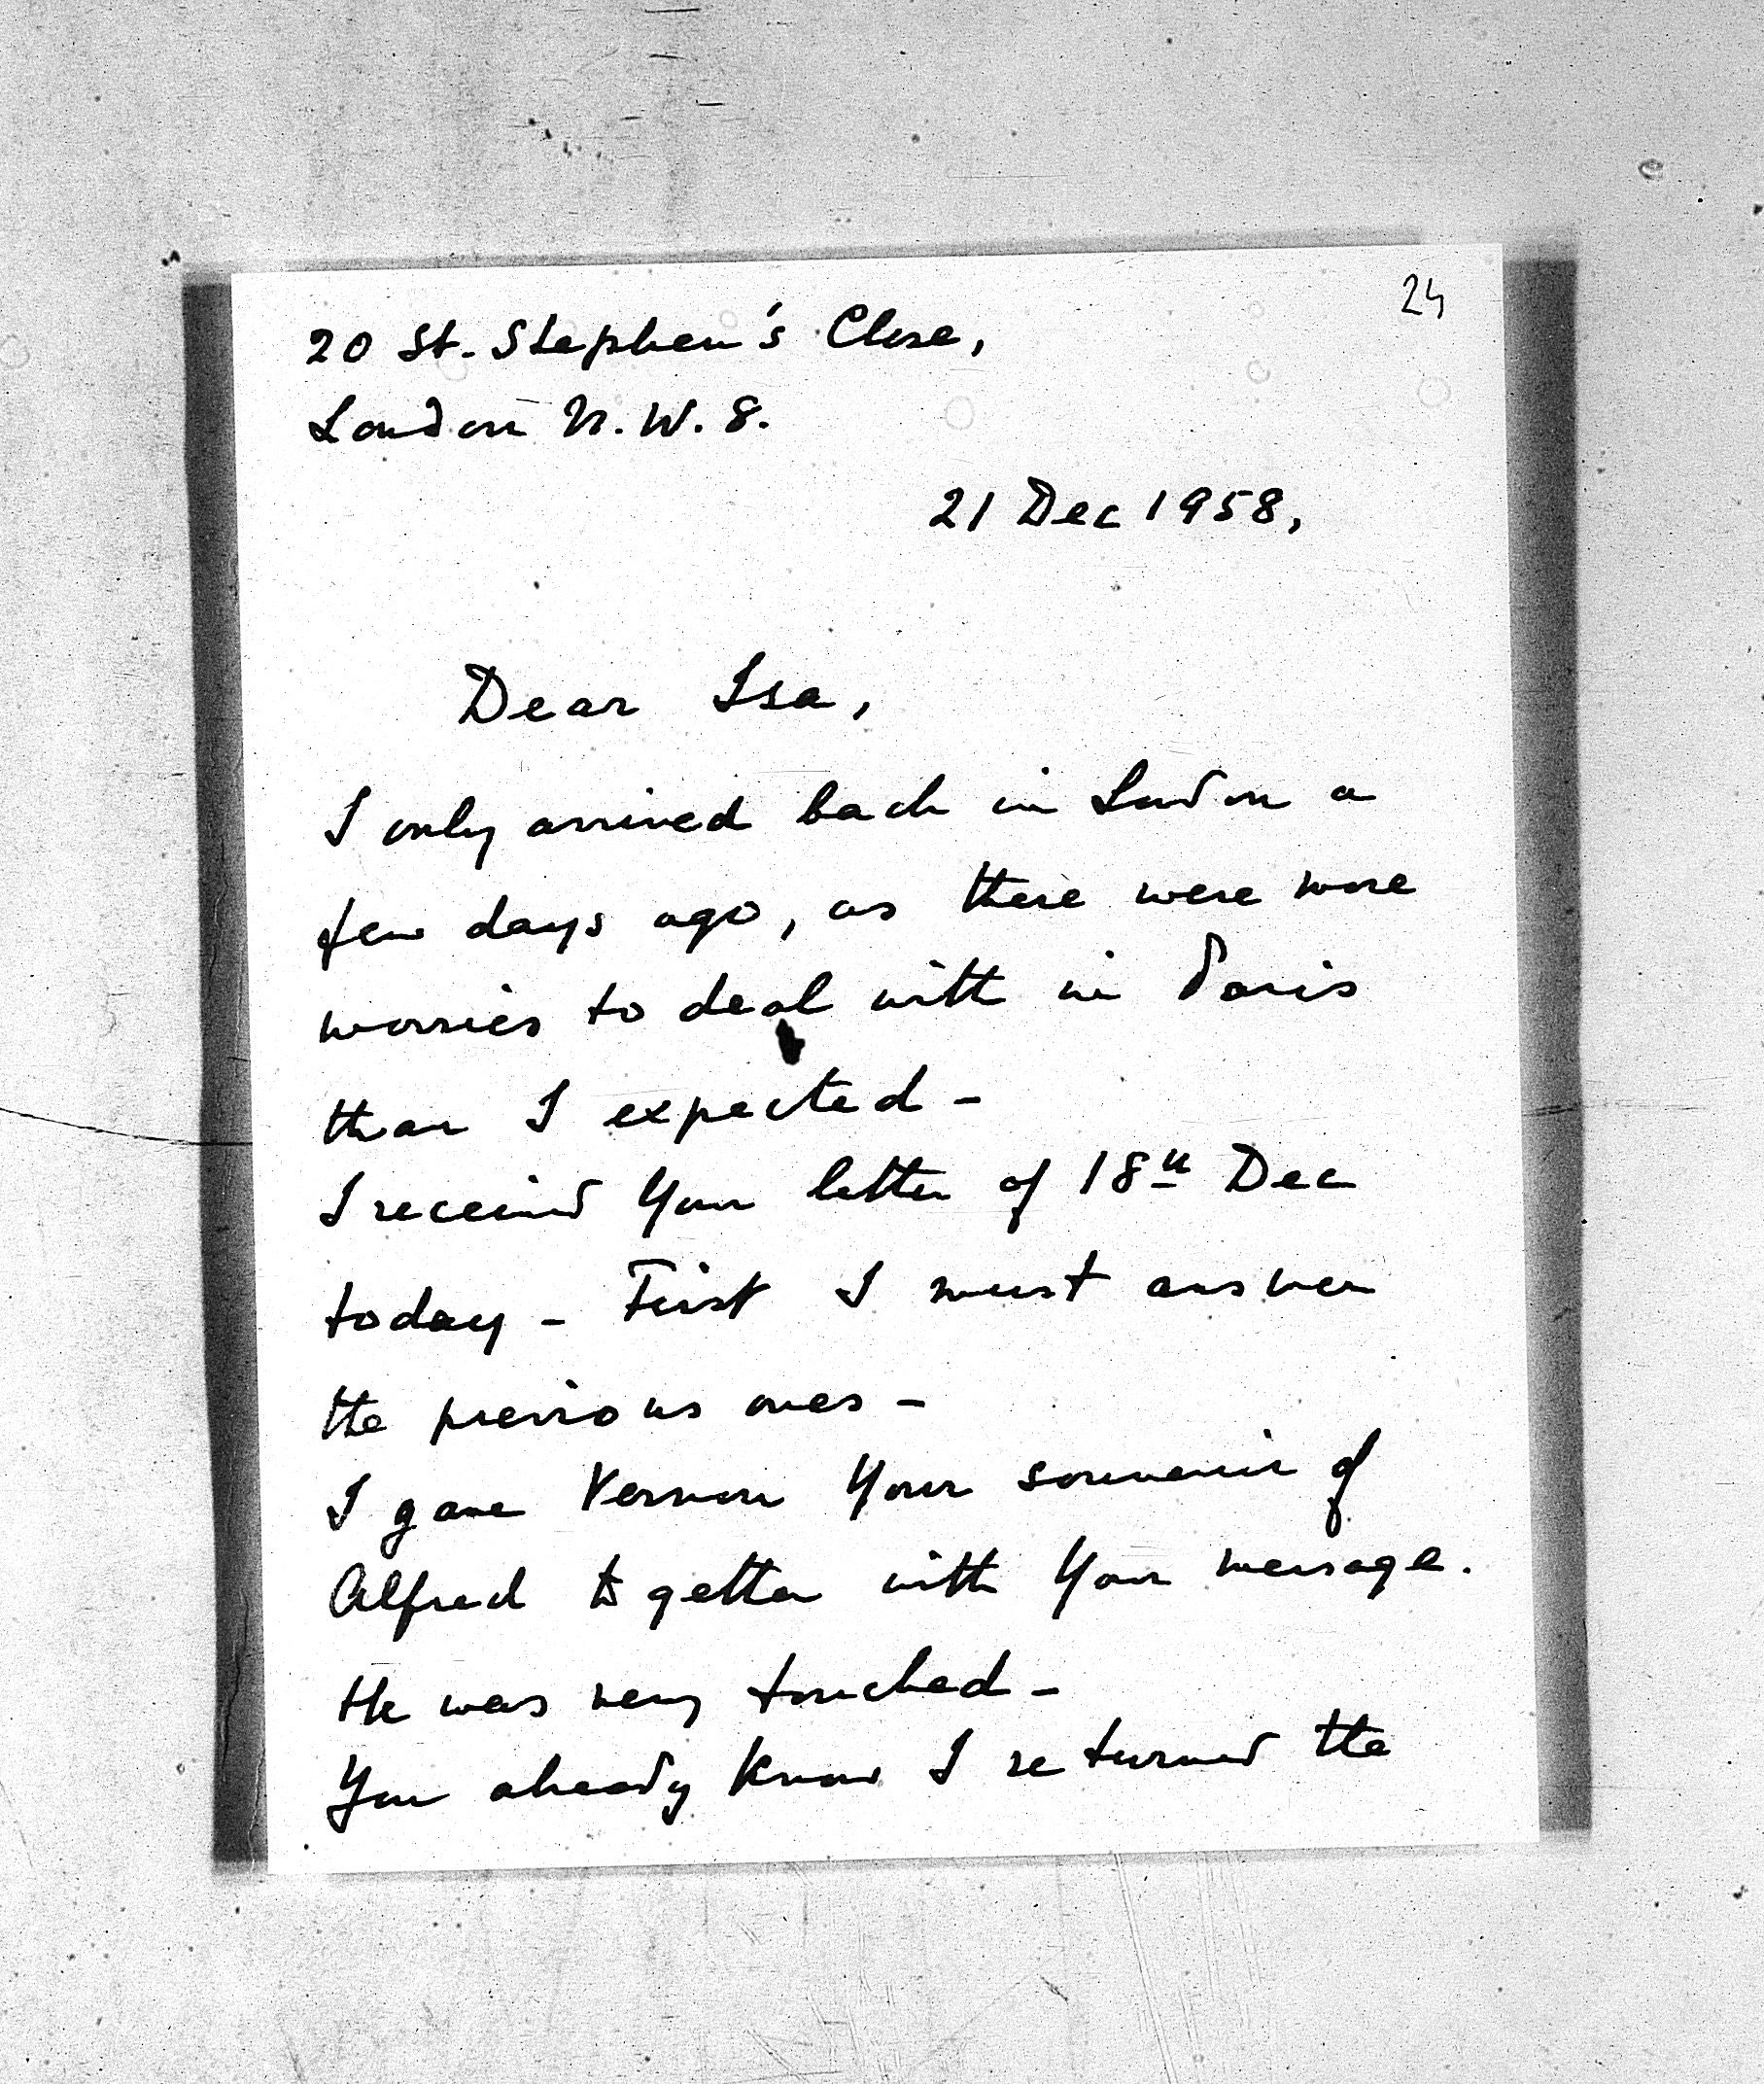 24
20 St. Stephen's Close,
London N.W.8.
21 Dec 1958,
Dear Isa,
I only arrived back in London a
few days ago, as there were more
worries to deal with in Paris
than I expected -
I received Your letter of 18th Dec
today - First I must answer
the previous ones -
I gave Vernon Your souvenir of
Alfred together with Your message.
He was very touched -
You already know I returned the